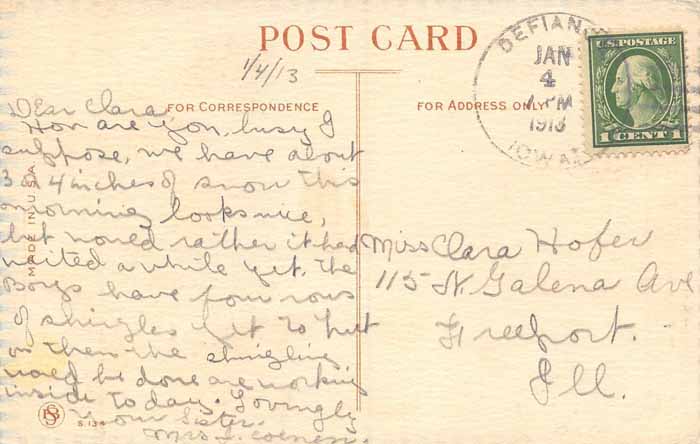 POST CARD
1/4/13
DEFIANCE
JAN
4
1 PM
1913
IOWA
U.S. POSTAGE
1 CENT 1
FOR CORRESPONDENCE
FOR ADDRESS ONLY
Dear Clara,
How are you, busy I
suppose, we have about
3 or 4 inches of snow this
morning looks nice,
but would rather it had
waited a while yet. The
Boys have four rows
of shingles yet to put
on then the shingling
would be done are working
inside to day. Lovingly
Your Sister.
Mrs.
Miss Clara Hofer
115 N Galena Ave
Freeport.
Ill.
MADE IN U.S.A.
S. 13